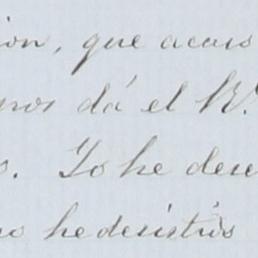 ion, que acais
nos dá el R.
s. Yo he dese
no he desistis